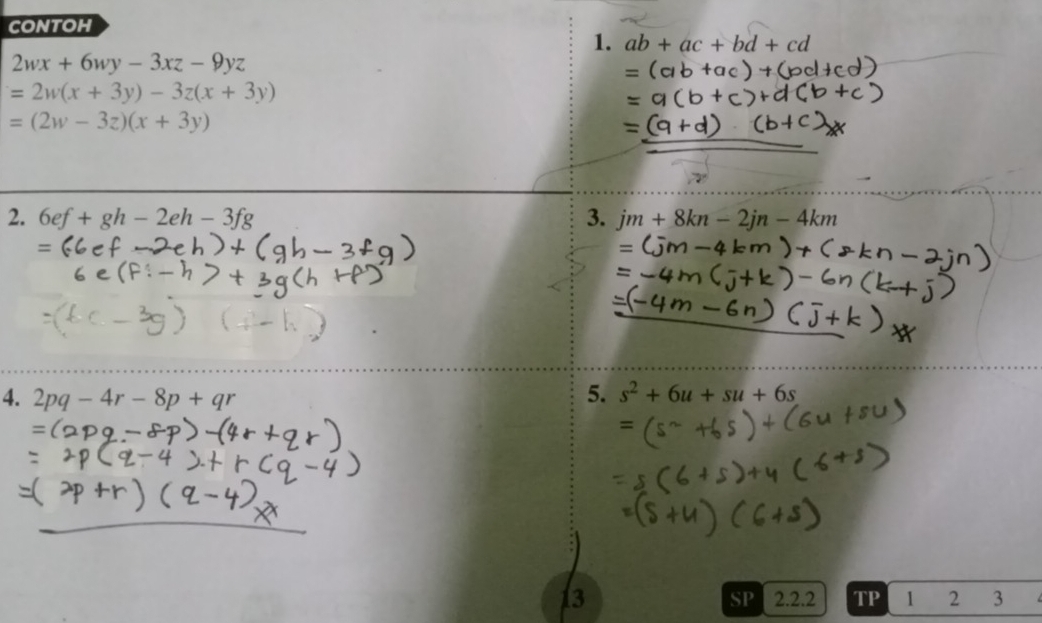 CONTOH
2wx + 6wy − 3xz − 9yz
= 2w(x + 3y) − 3z(x + 3y)
= (2w − 3z)(x + 3y)
1. ab + ac + bd + cd
= (ab + ac) + (bd + cd)
= a(b + c) + d(b + c)
= (a + d) (b + c)
2. 6ef + gh − 2eh − 3fg
= (6ef − 2eh) + (gh − 3fg)
6e(f − h) + 3g(h + f)
= ( − 3g) ( − h)
3. jm + 8kn − 2jn − 4km
= (jm − 4km) + (8kn − 2jn)
= −4m(j + k) − 6n(k + j)
= (−4m − 6n) (j + k)
4. 2pq − 4r − 8p + qr
= (2pq − 8p) − (4r + qr)
= 2p(q − 4) + r(q − 4)
= (2p + r) (q − 4)
5. s² + 6u + su + 6s
= (s² + 6s) + (6u + su)
= s(6 + s) + u(6 + s)
= (s + u) (6 + s)
13
SP 2.2.2 TP 1 2 3